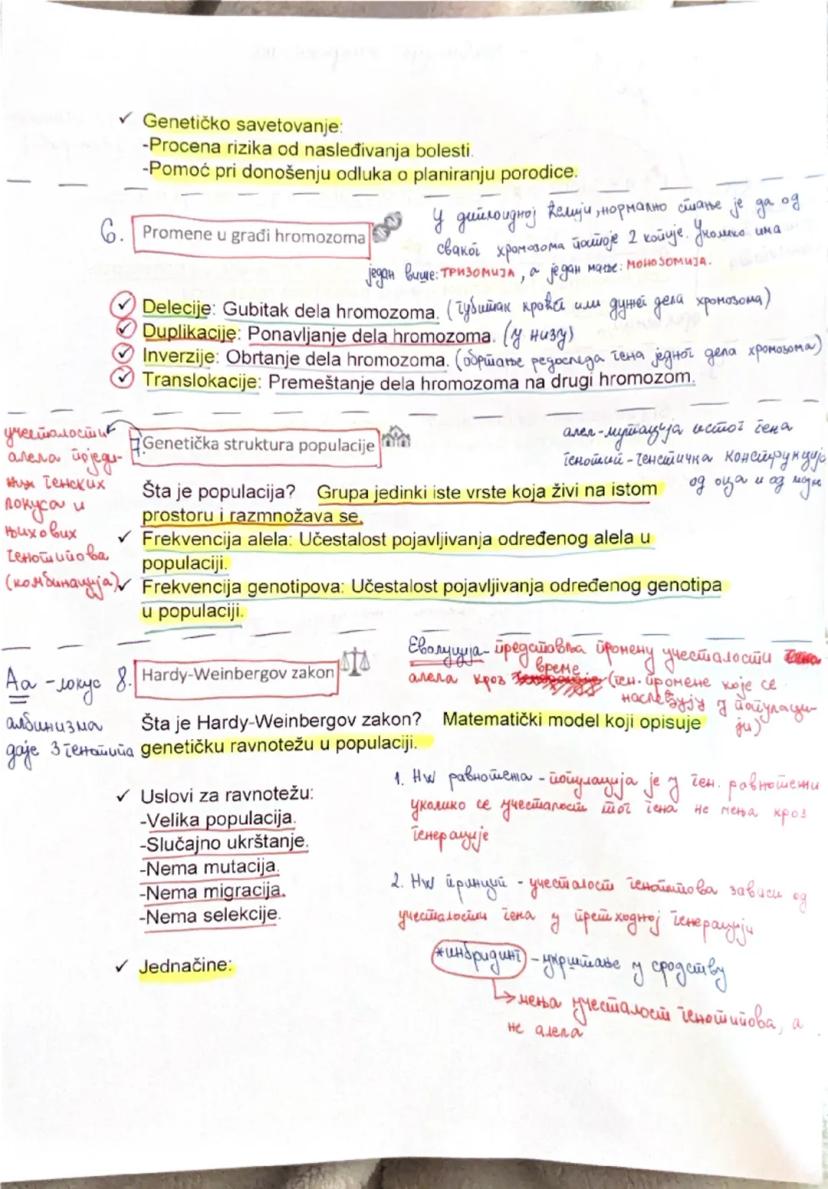 ✓ Genetičko savetovanje:
-Procena rizika od nasleđivanja bolesti.
-Pomoć pri donošenju odluka o planiranju porodice.
6. Promene u građi hromozoma
У диплоидној ћелији, нормално стање је да од
сваког хромозома постоје 2 копије. Уколико има
један више: ТРИЗОМИЈА, а један мање: МОНОЗОМИЈА.
✓ Delecije: Gubitak dela hromozoma. (губитак краћег или дужег дела хромозома)
✓ Duplikacije: Ponavljanje dela hromozoma. (у низу)
✓ Inverzije: Obrtanje dela hromozoma. (обртање редоследа гена једног дела хромозома)
✓ Translokacije: Premeštanje dela hromozoma na drugi hromozom.
7. Genetička struktura populacije
учесталости
алела поједи-
них генских
локуса и
њихових
генотипова
(комбинација)
алел-мутација истог гена
генотип-генетичка конструкција
од оца и од мајке
Šta je populacija? Grupa jedinki iste vrste koja živi na istom
prostoru i razmnožava se.
✓ Frekvencija alela: Učestalost pojavljivanja određenog alela u
populaciji.
✓ Frekvencija genotipova: Učestalost pojavljivanja određenog genotipa
u populaciji.
8. Hardy-Weinbergov zakon
Еволуција-представља промену учесталости
алела кроз време (ген. промене које се
наслеђују у популаци-
ји)
Аа -локус
албинизма
даје 3 генотипа
Šta je Hardy-Weinbergov zakon? Matematički model koji opisuje
genetičku ravnotežu u populaciji.
✓ Uslovi za ravnotežu:
-Velika populacija.
-Slučajno ukrštanje.
-Nema mutacija.
-Nema migracija.
-Nema selekcije.
✓ Jednačine:
1. HW равнотежа - популација је у ген. равнотежи
уколико се учесталост тог гена не мења кроз
генерације
2. HW принцип - учесталост генотипова зависи од
учесталости гена у претходној генерацији
*инбридинг - укрштање у сродству
→ мења учесталост генотипова, а
не алела